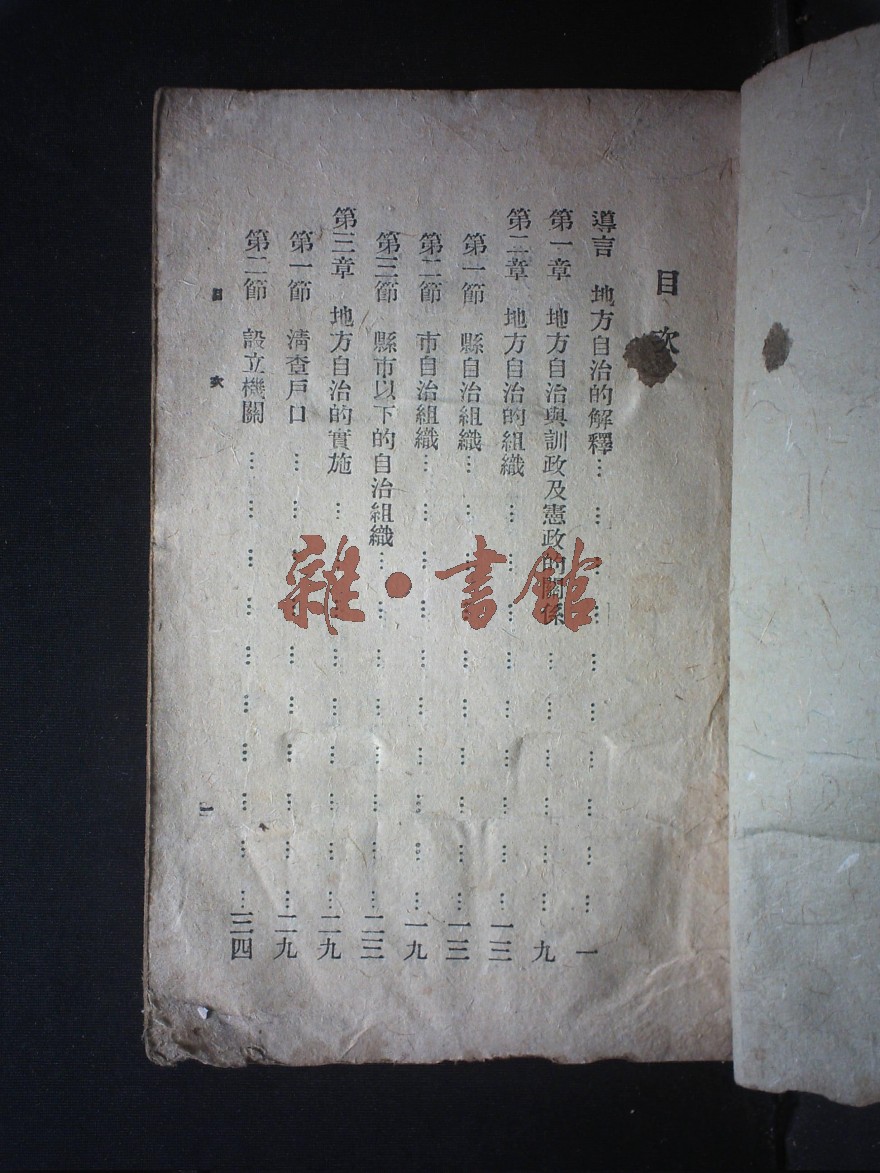 目次
導言 地方自治的解釋…………………………一
第一章 地方自治與訓政及憲政的關係…………九
第二章 地方自治的組織…………………………一三
第一節 縣自治組織…………………………一三
第二節 市自治組織…………………………一九
第三節 縣市以下的自治組織…………………………二三
第三章 地方自治的實施…………………………二九
第一節 清查戶口…………………………二九
第二節 設立機關…………………………三四
目次
一
雜·書館